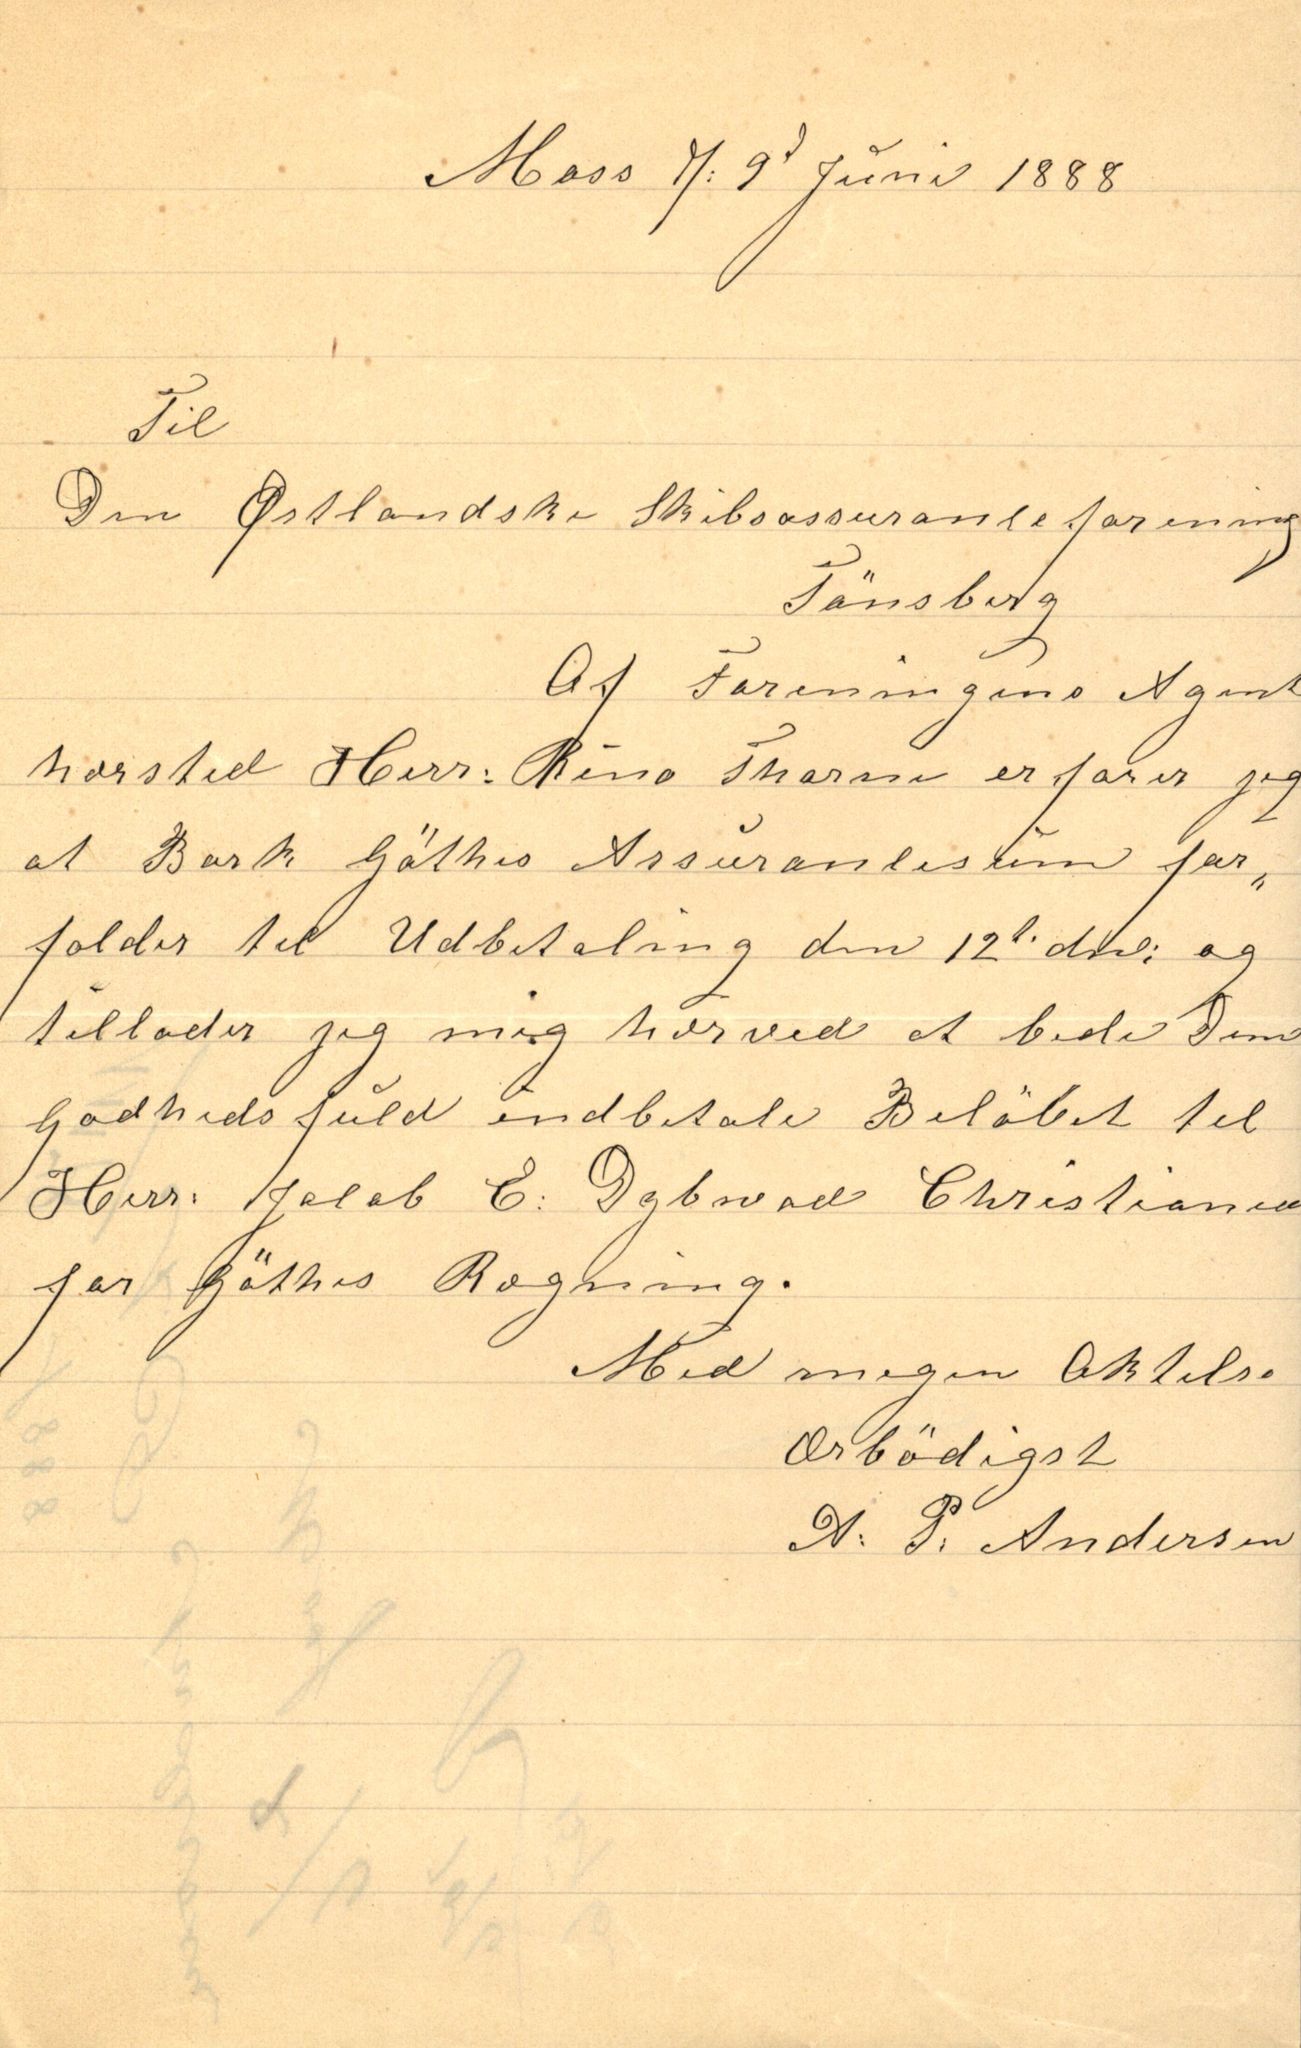 Moss d/: 9d Juni 1888
Til
Den Østlandske Skibsassuranceforening
Tönsberg
Af Foreningens Agent
hersted Herr: Rino Thorne erfarer jeg
at Bark Göthes Assurancesum for„
falder til Udbetaling den 12t. dns: og
tillader jeg mig herved at bede Dem
godhedsfuld indbetale Belöbet til
Herr: Jacob E. Dybwad Christiania
for Göthes Regning.
Med megen Aktelse
Ærbödigst
A. P. Andersen